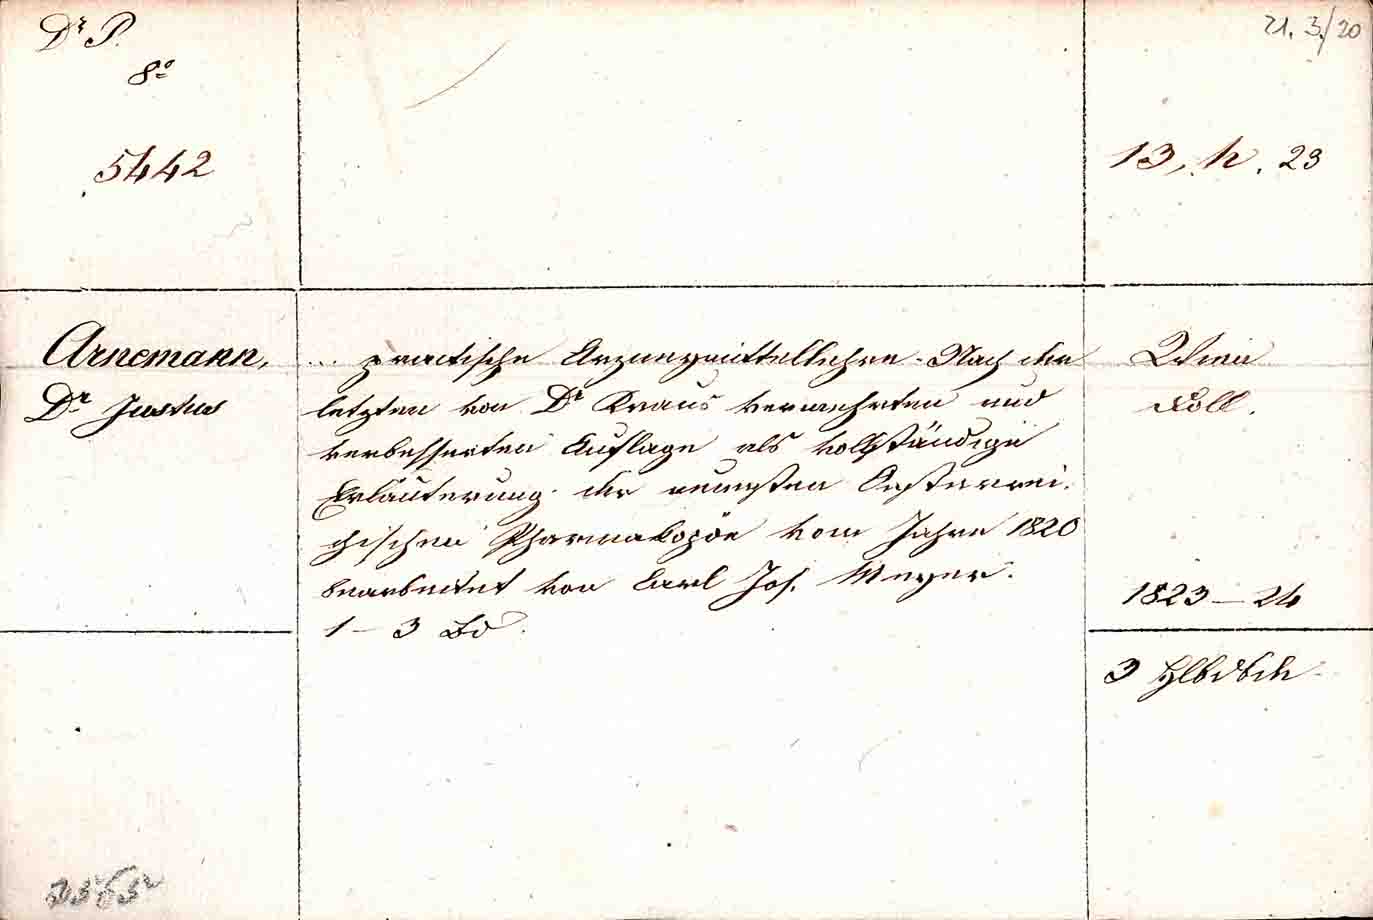 Dr P.
8o
5442
21. 3./20
13, h. 23
Arnemann,
Dr Justus
... practische Arzneymittellehre. Nach der
letzten von Dr Kraus vermehrten und
verbesserten Auflage als vollständige
Erläuterung der neuesten Oesterrei-
chischen Pharmakopöe vom Jahre 1820
bearbeitet von Carl Jos. Meyer.
1 – 3 Bd.
Wien
Doll.
1823 – 24
3 Hlbdbde